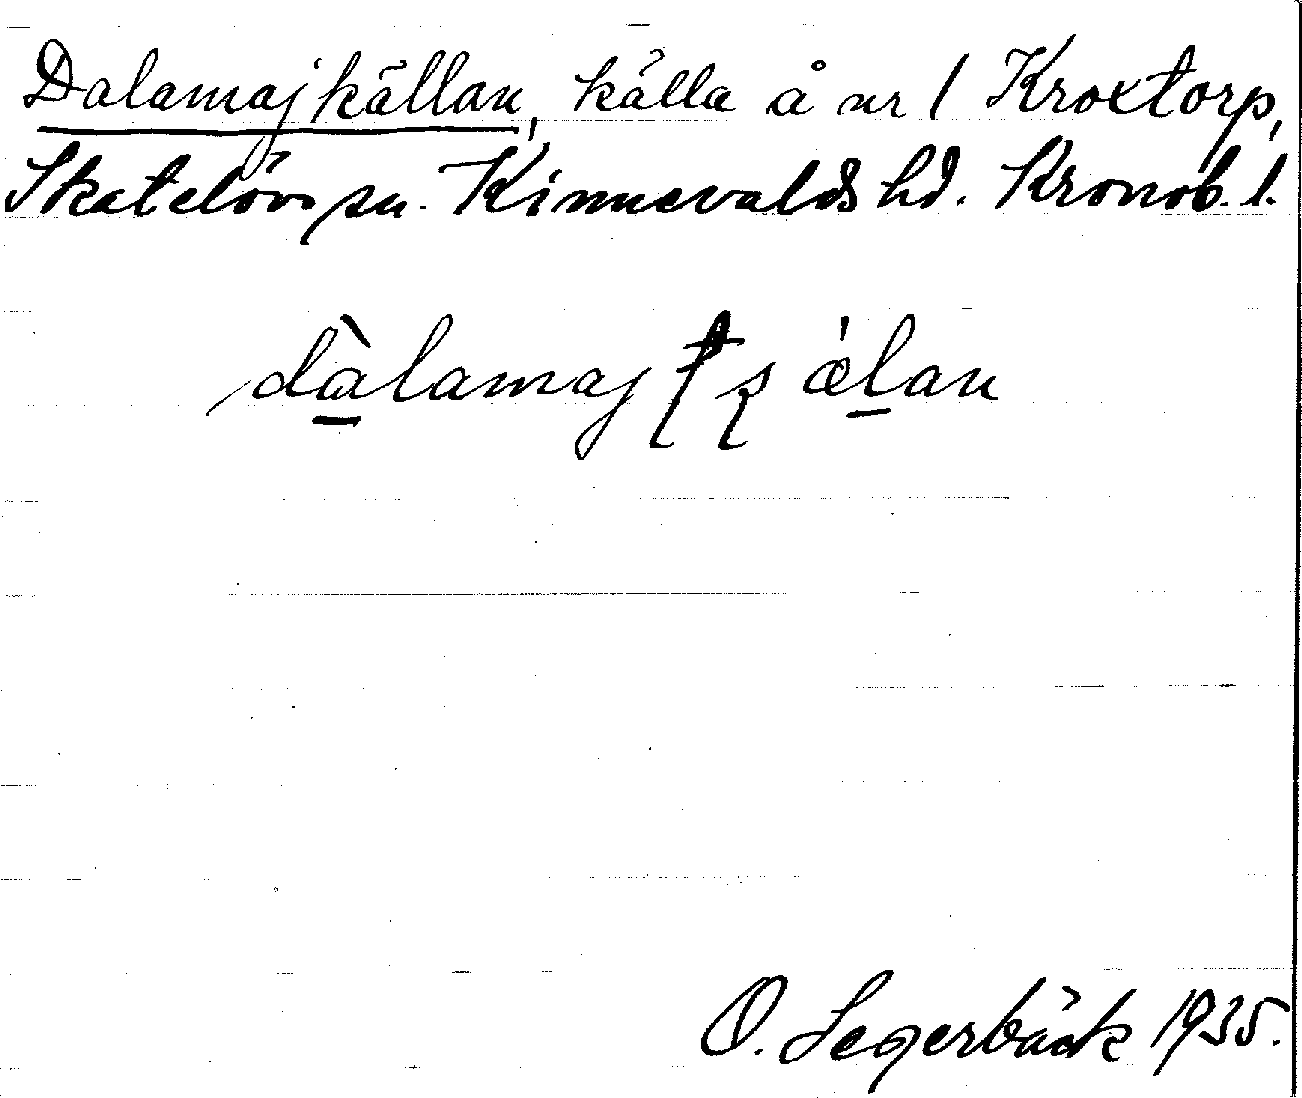 Dalamajkällan, källa å nr 1 Kroxtorp,
Skatelövs sn. Kinnevalds hd. Kronob. l.
dàlamajtʂǽlan
O. Segerbäck 1935.